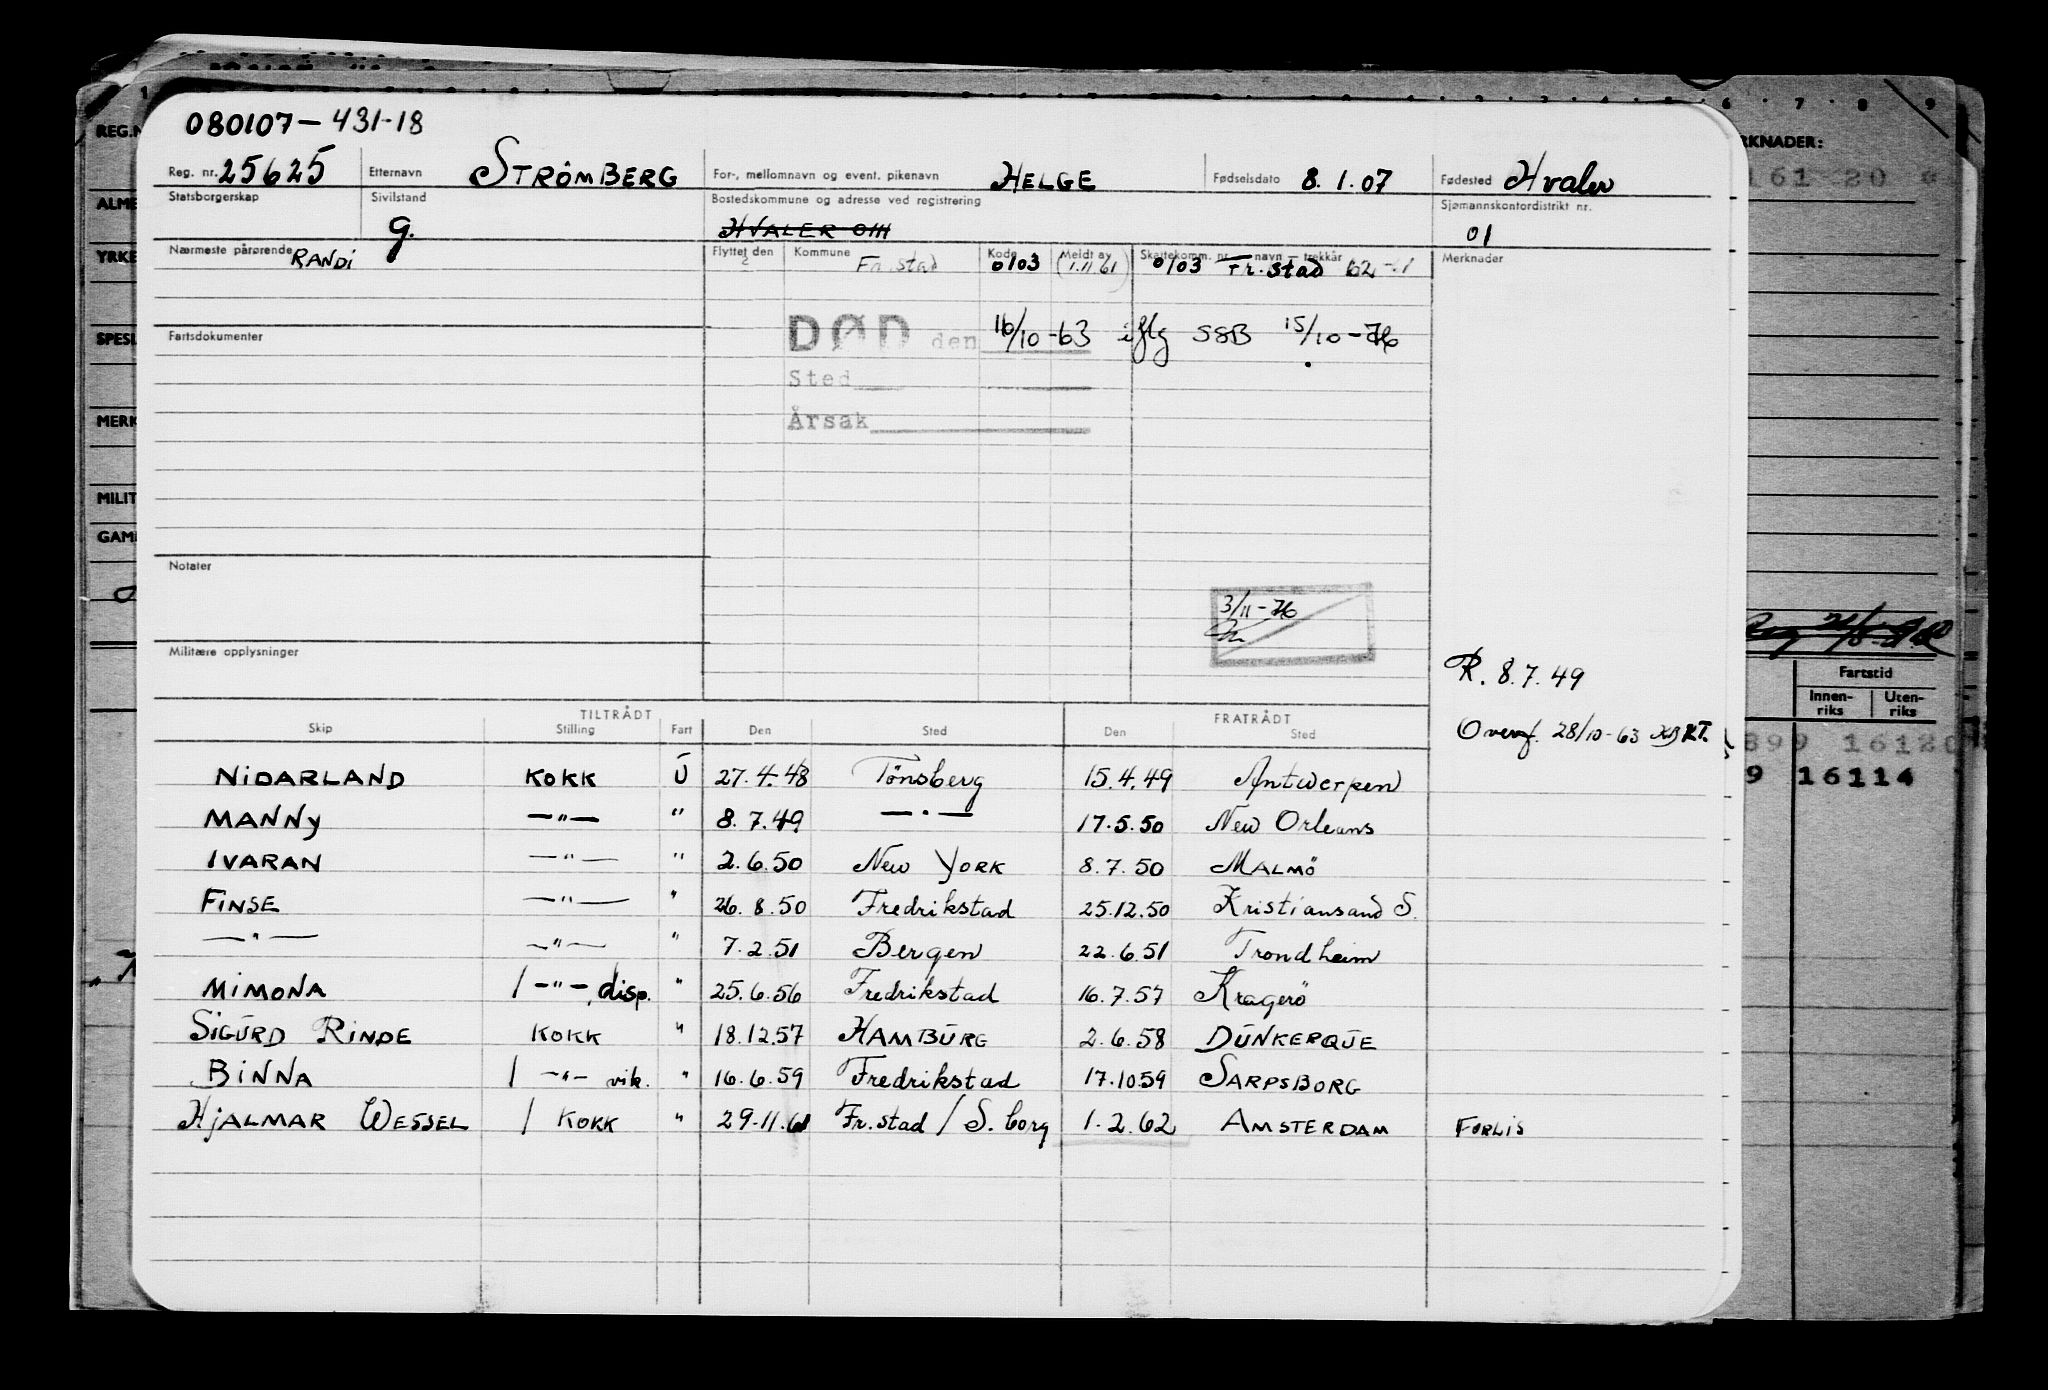 080107-431-18
Reg. nr. 25625 Etternavn STRØMBERG For-, mellomnavn og event. pikenavn HELGE Fødselsdato 8.1.07 Fødested Hvaler
Statsborgerskap Sivilstand Bostedskommune og adresse ved registrering Sjømannskontordistrikt nr.
g. HVALER 0111 01
Nærmeste pårørende RANDI Flyttet den Kommune Fr.stad Kode 0103 Meldt av (1.11.61) Skattekomm. nr. navn - trekkår 0103 Fr.stad Merknader
Fartsdokumenter
DØD den 16/10-63 iflg SSB 15/10-76
Sted
Årsak
Notater
3/11-76
Militære opplysninger
R. 8.7.49
Overf. 28/10-63 KT.
TILTRÅDT FRATRÅDT
Skip Stilling Fart Den Sted Den Sted
NIDARLAND KOKK U 27.4.48 Tönsberg 15.4.49 Antwerpen
MANNY —"— " 8.7.49 —"— 17.5.50 New Orleans
IVARAN —"— " 2.6.50 New York 8.7.50 MALMÖ
FINSE —"— " 26.8.50 Fredrikstad 25.12.50 Kristiansand S.
—"— —"— " 7.2.51 Bergen 22.6.51 Trondheim
MIMONA / —"— disp. " 25.6.56 Fredrikstad 16.7.57 Kragerö
SIGURD RINDE KOKK " 18.12.57 HAMBURG 2.6.58 DUNKERQUE
BINNA / —"— vik. " 16.6.59 Fredrikstad 17.10.59 SARPSBORG
HJALMAR WESSEL / KOKK " 29.11.61 Fr.stad / S.borg 1.2.62 AMSTERDAM FORLIS
REG.N
ALME
YRKE
SPESI
MERK
MILIT
GAM
6 7 8 9
RKNADER:
161 20
Fartstid
Innen-riks Uten-riks
899 16120
9 16114